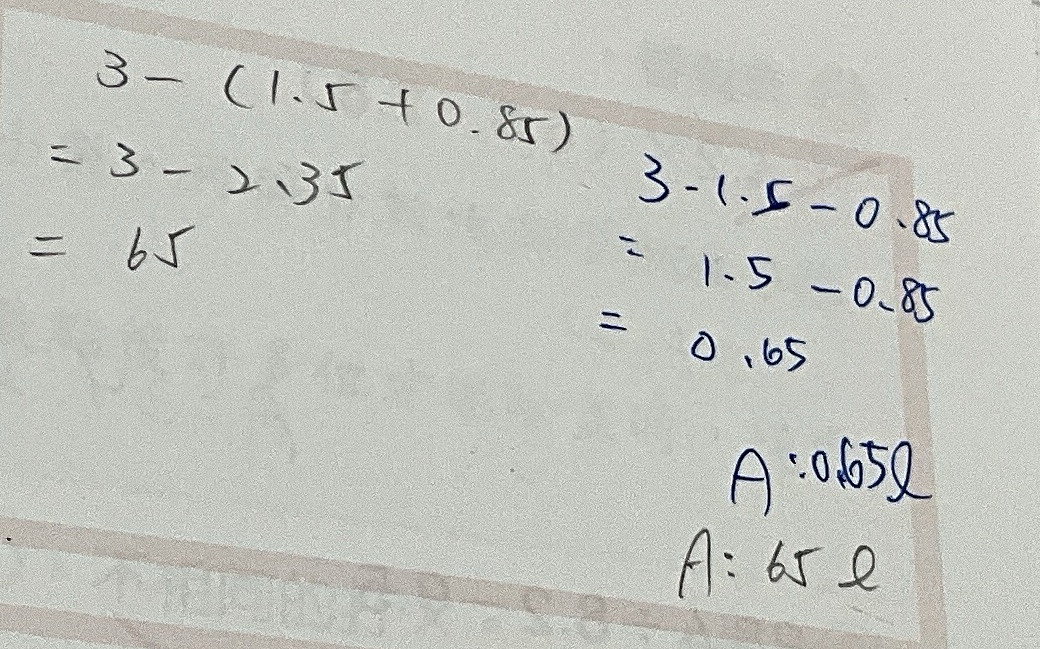 3 - (1.5 + 0.85)
= 3 - 2.35
= 65
3 - 1.5 - 0.85
= 1.5 - 0.85
= 0.65
A: 0.65l
A: 65 l